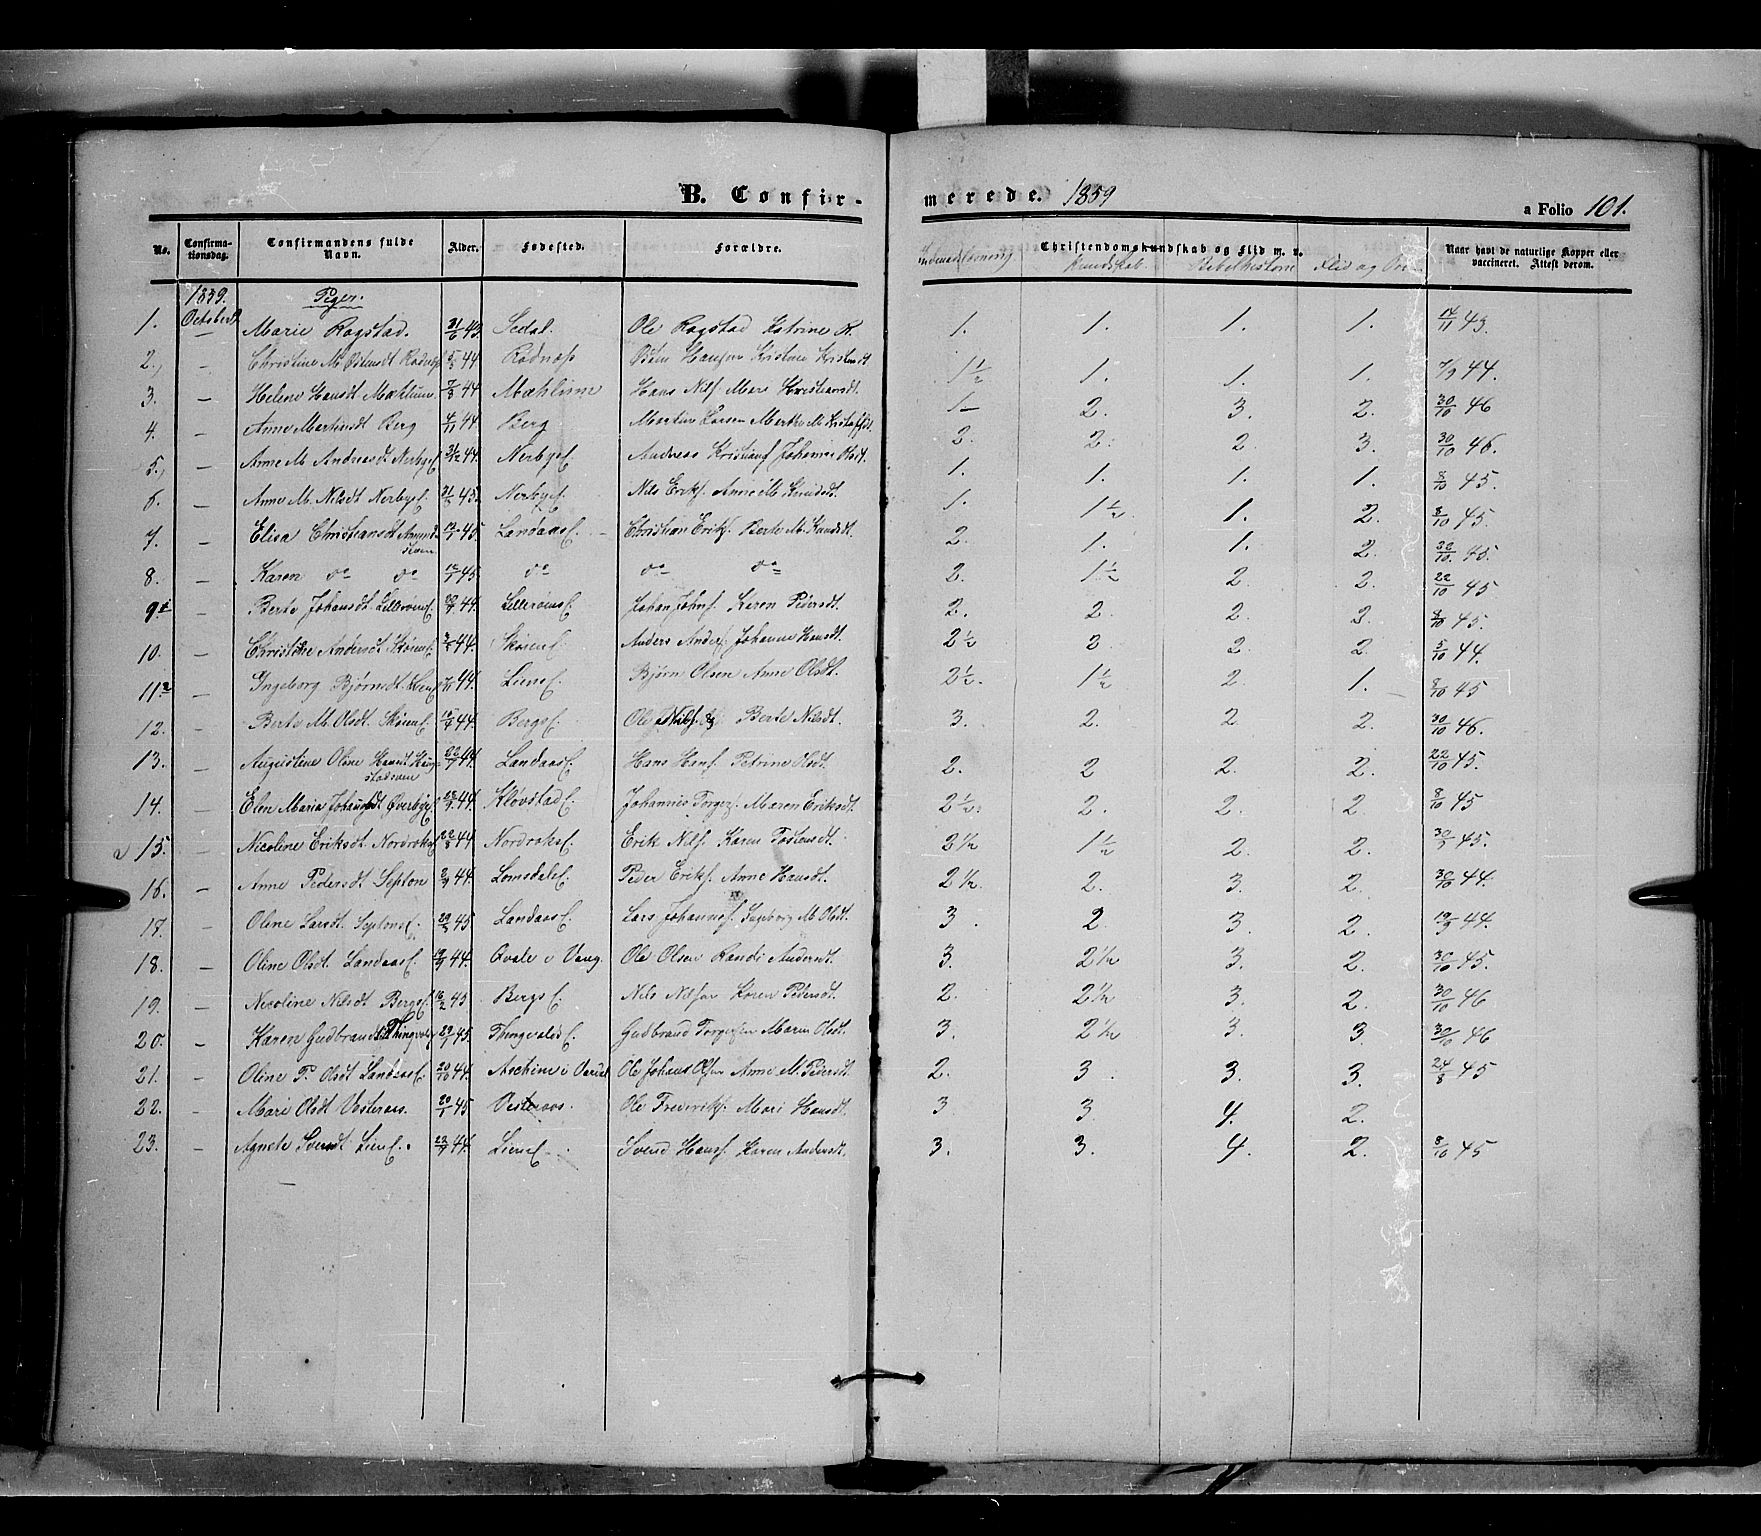 B. Confir-
merede. 1859
a Folio 101.
No. Confirmationsdag. Confirmandens fulde Navn. Alder. Fødested. Forældre. Indenadslæsning Christendomskundskab og Flid m. v. Kundskab. Bibelhistorie Flid og Naar havt de naturlige Kopper eller vaccineret. Attest derom.
1859. Piger.
1. October 2 Marie Rogstad. 21/6 43. Sedal. Ole Rogstad Katrine R. 1. 1. 1. 1. 14/11 43.
2. – Christine M. Østensdt Rodnæs 44 Rodnæss Østen Hansen Kristine 1½ 1. 1. 1. 7/9 44.
3. – Helene Hansdt Mæhlum 7/3 44 Mæhlum Hans Nils. Mari Kristiansdt. 1– 2. 3. 2. 30/10 46
4. – Anne Martinsdt Berg 4/11 44 Berg Martin Larsen Marthe M. 2. 2. 2. 3. 30/10 46.
5. – Anne M. Andreasdt Nerbyeſ 44. Nerbyeſ. Andreas Kristianſ Johanne Olsdt. 1. 1. 1. 1. 8/10 45.
6. – Anne M. Nilsdt Nerbyeſ. 45. Nerbyeſ. Nils Eriks. Anne M. Knudsdt. 1. 1½. 1. 2. 8/10 45.
7. – Elisa Christiansdt Amundseien 12/1 45. Landaasſ. – Christian Erikſ. Berte M. Knudsdt. 2. 1. 1. 2. 22/10. 45.
8. – Karen do do 12/1 45. do do do 2. 1½ 2. 2. 22/10 45
9. – Berte Johansdt. Lillerønsſ. 44. Lillerønsſ. Johan Johnſ. Karen Pedersdt. 2. 2. 2. 3. 8/10 45.
10. – Christine Andersdt Skørenſ. 44. Skørenſ. Anders Anderſ Johanne Hansdt. 2½ 3. 2. 2. 5/10 44.
11. – Ingeborg Bjørnsdt. Lienſ 7/11 44. Lienſ. Bjørn Olsen Anne Olsdt. 2½. 1½ 2. 1. 8/10 45
12. – Berte M. Olsdt. Skørenſ. 44. Bergsſ. Ole Nilsſ. Berte Nilsdt. 3. 2. 2 2. 30/10 46.
13. – Augustine Oline Hansdt Haugstadsveen 22/7 44. Landaasſ. Hans Hansſ. Petrine Olsdt. 2. 2 2. 2. 22/10 45.
14. – Elen Maria Johannesdt Øverbyeſ. 44. Kløvstadſ. Johannes Torgerſ. Maren Eriksdt. 2½. 2. 2. 2. 8/10 45
15. – Nicoline Eriksdt. Nordroksſ 22/8 44 Nordroksſ. Erik Nilsſ. Karen Tostensdt. 2½ 1½ 2. 2. 45.
16. – Anne Pedersdt Septon 44. Lomsdaleſ. Peder Eriksſ. Anne Hansdt. 2½. 2. 3. 2. 30/10 44.
17. – Oline Larsdt. Septonsſ. 45 Landaasſ. Lars Johannesſ. Ingeborg M. Olsdt. 3. 2. 3. 2. 19/9 44.
18. – Oline Olsdt. Landaasſ. 44. Qvale i Vang. Ole Olsen Randi Andersdt. 3. 2½ 3. 2. 30/10 45.
19. – Nicoline Nilsdt Bergsſ. 16/2 45 Bergsſ. Nils Nilsen Karen Pedersdt. 2. 2½ 3. 2. 30/10 46
20. – Karen Gudbrandsdt Thingvolds 45. Thingvoldsſ. Gudbrand Torgersen Maren Olsdt. 3. 2½ 3. 3. 30/10 46
21. – Oline P. Olsdt Landaasſ. 20/10 44. Aschim i Vardal Ole Johans Olsen Anne M. Pedersdt. 2. 3. 3. 3. 24/8 45
22. – Mari Olsdt Vesteraas. 20/1 45 Vesteraas. Ole Frederiksſ. Mari Hansdt. 3. 3. 4. 2.
23. – Agnete Svendt Lienſ. 44. Lienſ. Svend Hansſ. Karen Andersdt. 3. 3. 4. 2. 8/10 45